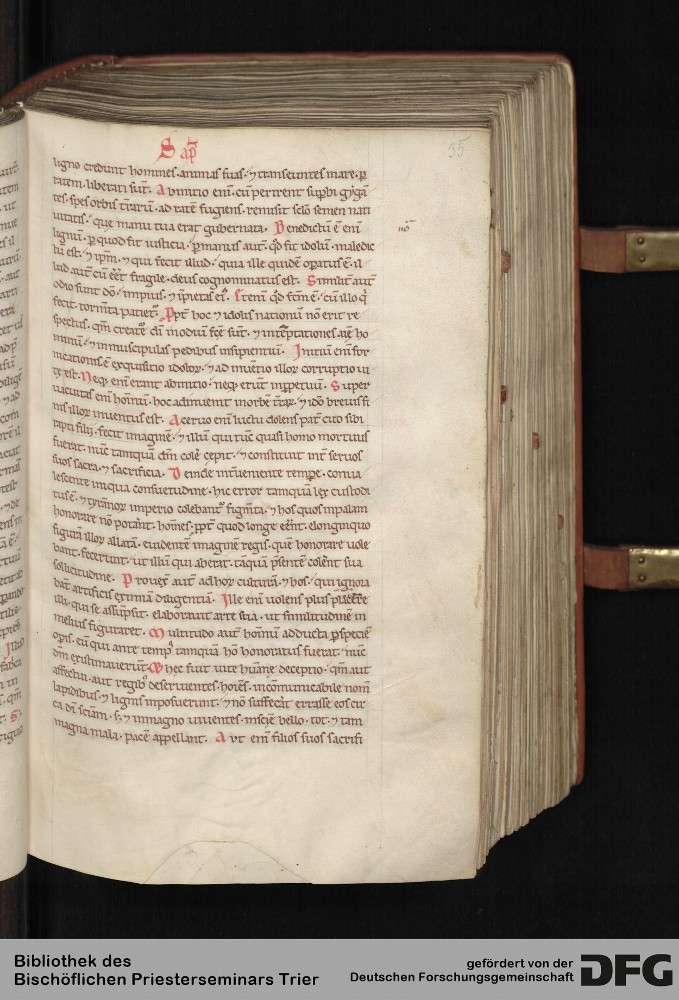 Sap̄
35
ligno credunt homines animas suas. ⁊ transeuntes mare. ꝑ
ratem. liberati sūt. Ab initio enī. cū perirent supbi gygan
tes. spes orbis t̄rarū. ad ratē fugiens. remisit sclo semen nati
uitatis. que manu tua erat gubernata. Benedictū ē enī
lignū. ꝑ quod fit iusticia. ꝑ manus aut̄ qd̄ fit idolū. maledic
tū est. ⁊ ipm̄. ⁊ qui fecit illud. quia ille quidē operatus ē. il
lud aut̄ cū eēt fragile. deus cognominatus est. Similit̄ aut̄
odio sunt dō. impius. ⁊ īpietas ei᷒. Etenī qd̄ fcm̄ ē. cū illo q̇
fecit. torm̄ta patiet᷒. Ppt̄ hoc ⁊ idolis nationū nō erit re
spectus. qm̄ creatē dī in odiū fcē sūt. ⁊ in temptationes aīe ho
minū. ⁊ in muscipulas pedibus insipientiū. Initiū enī for
nicationis ē exquisitio idolor̄. ⁊ ad inuētio illor̄ corruptio ui
tę est. Neq; enī erant ab initio. neq; erūt in ꝑpetuū. Super
uacuitas enī hominū. hoc adinuenit in orbē t̄rar̄. ⁊ idō breuis fi
nis illor̄ inuentus est. Acerbo enī luctu dolens pat̄ cito sibi
rapti filii. fecit imaginē. ⁊ illū qui tūc quasi homo mortuus
fuerat. nūc tamquā dm̄ colē cepit. ⁊ constituit int̄ seruos
suos sacra. ⁊ sacrificia. Deinde int̄ueniente tempe. conua
lescente iniqua consuetudine. hic error tamquā lex custodi
tus ē. ⁊ tyrannor̄ imperio colebant᷒ figm̄ta. ⁊ hos quos in palam
honorare nō potant̄. hom̄es. ppt̄ quod longe eēnt. e longinquo
figura illor̄ allata. euidentē imaginē regis. quē honorare uole
bant. fecerunt. ut illū qui aberat. taquā p̄sentē colent̄ sua
sollicitudine. Prouex̄ aut̄ ad hor̄ culturā. ⁊ hos. qui ignora
bāt artificis eximia diligentiā. Ille enī uolens plus placēre
illi. qui se assūpsit. elaborauit arte sua. ut similitudinē in
melius figuraret. Multitudo aut̄ hominū adducta ꝑ speciē
oꝑis. eū qui ante temp᷒ tamquā hō honoratus fuerat. nūc
dm̄ existimauerūt. Et hec fuit uite humanę deceptio. qm̄ aut
affectui. aut regib᷒ deseruientes. hoīes. incōmunicabile nom̄
lapidibus. ⁊ lignis imposuerunt. ⁊ nō suffecāt errasse eos cir
ca dī sciam̄. s; ⁊ in magno uiuentes. inscię bello. tot. ⁊ tam
magna mala. pacē appellant. Aut enī filios suos sacrifi
Bibliothek des
Bischöflichen Priesterseminars Trier
gefördert von der
Deutschen Forschungsgemeinschaft
DFG